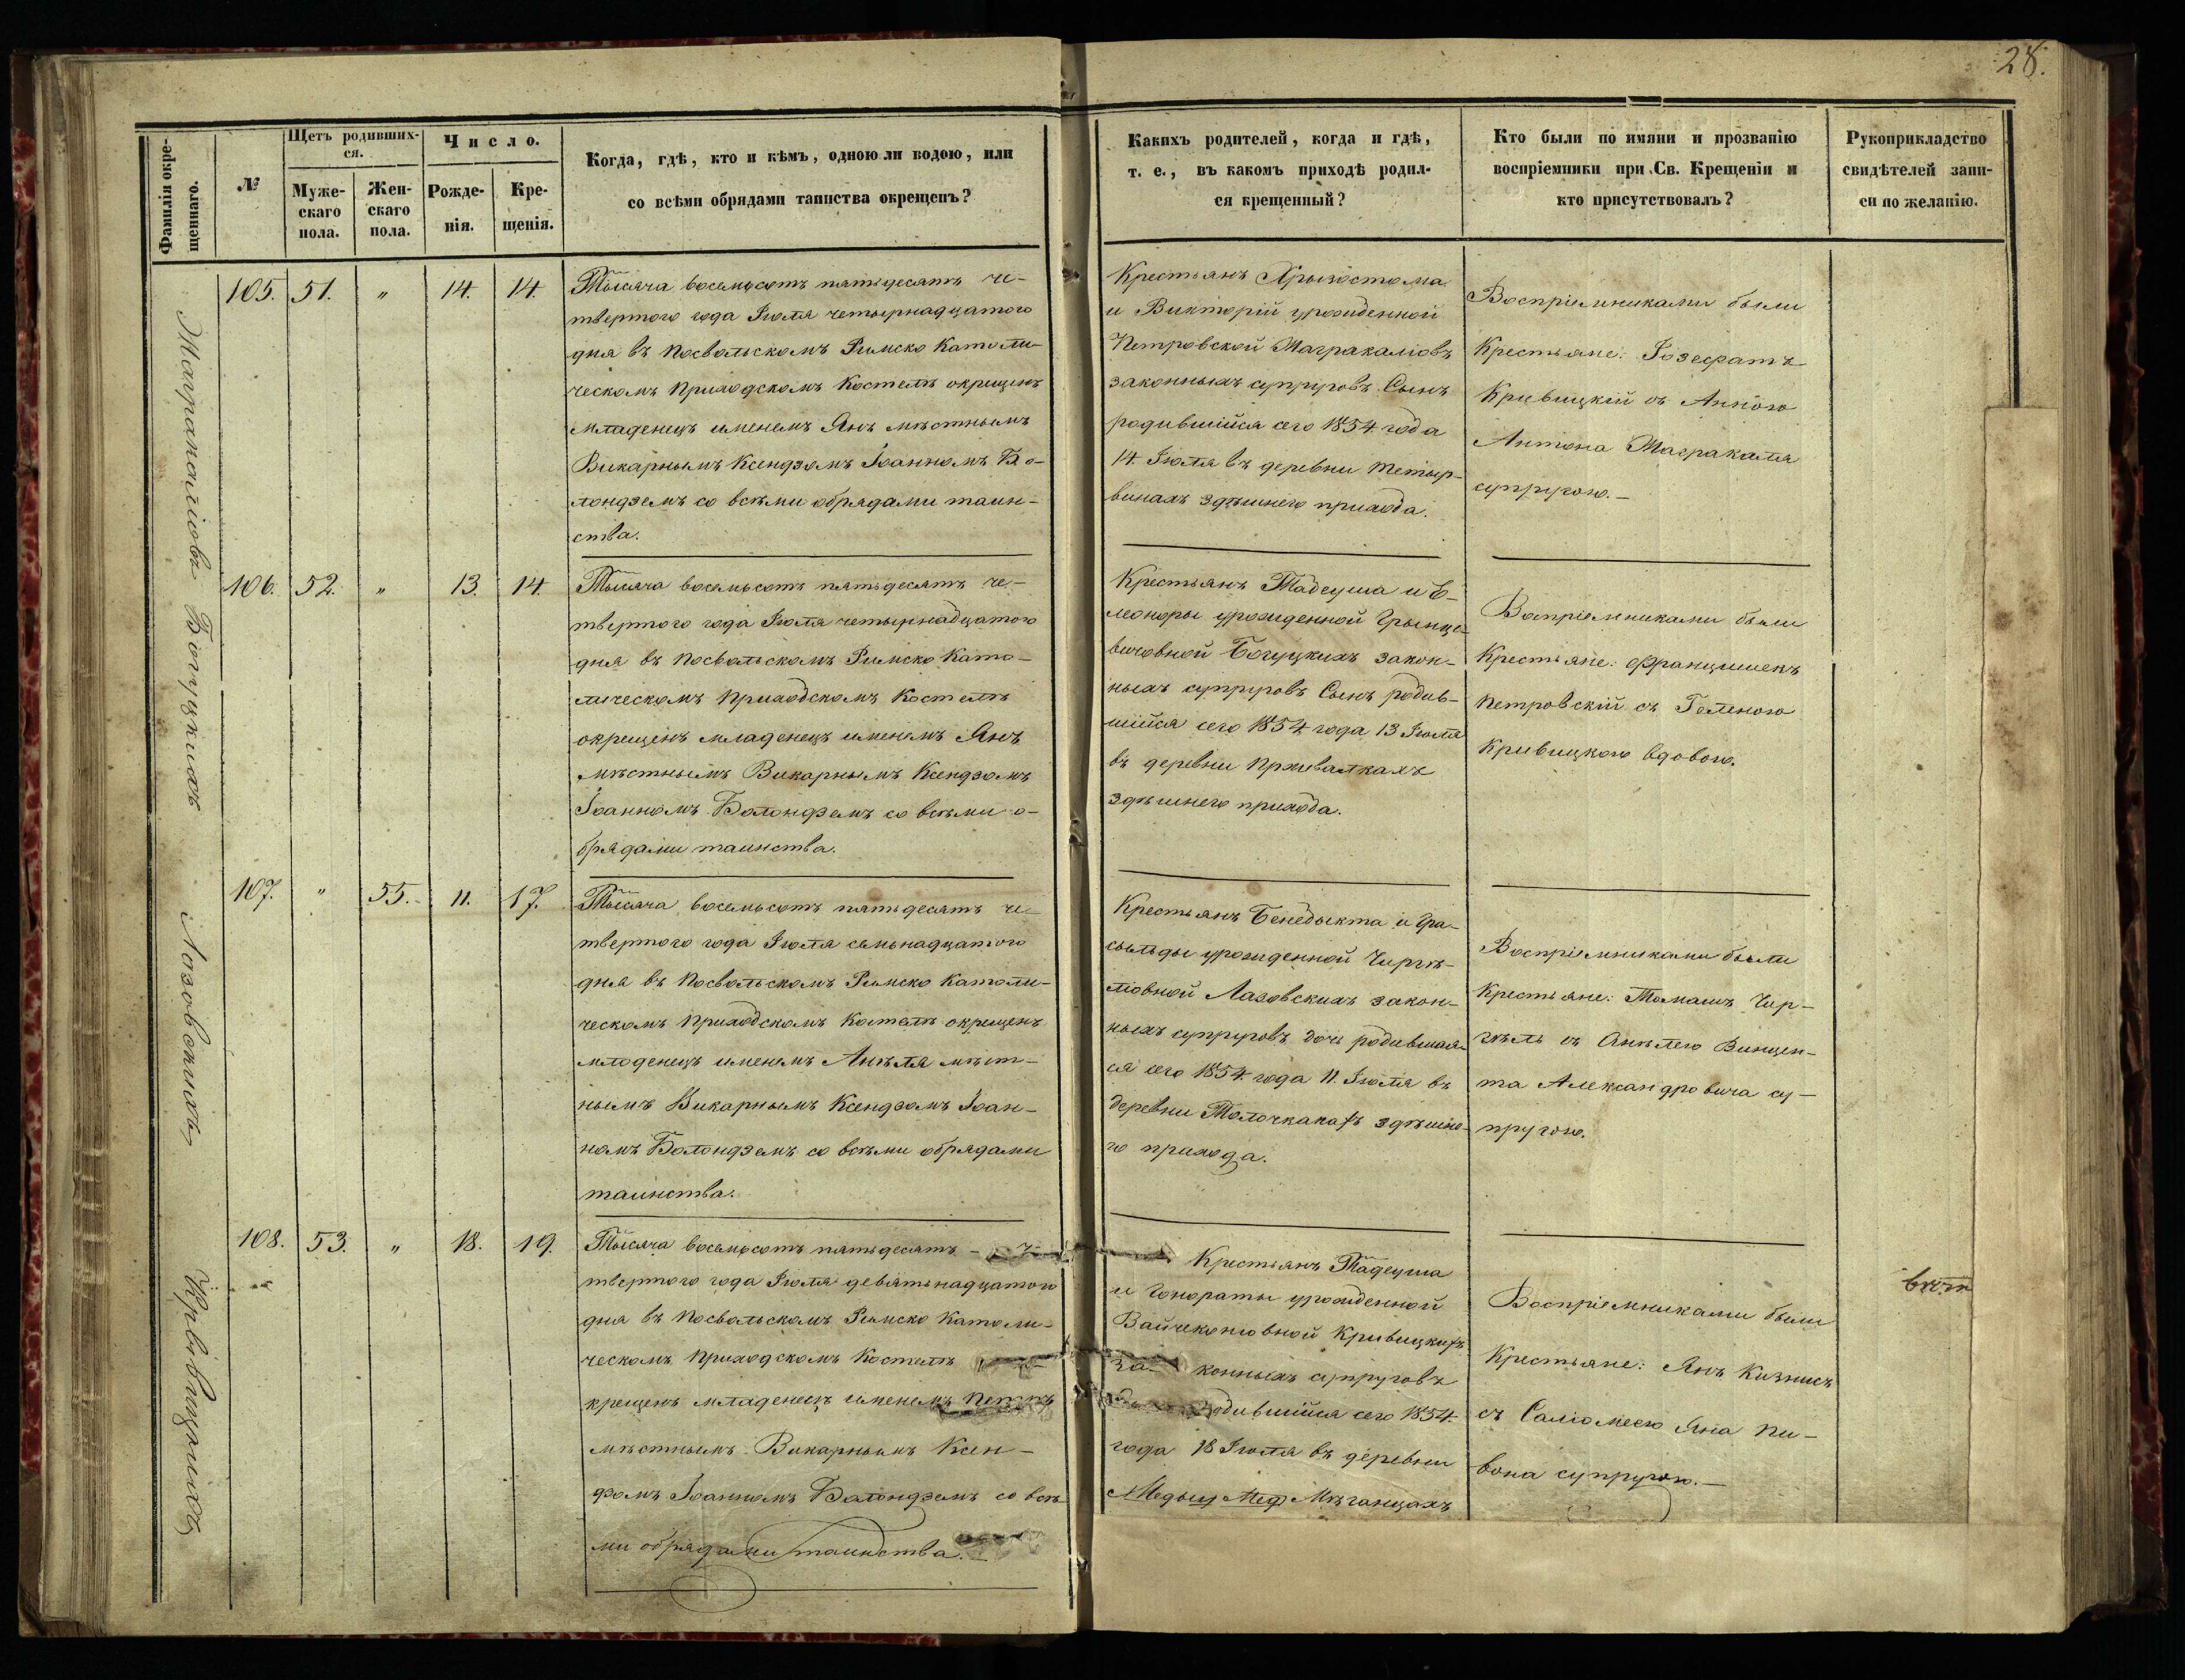 28.
Фамилія окре-
щеннаго.
№
Щетъ родивших-
ся.
Муже-
скаго
пола.
Жен-
скаго
пола.
Число.
Рожде-
нія.
Кре-
щенія.
Когда, гдѣ, кто и кѣмъ, одною ли водою, или
со всѣми обрядами таинства окрещенъ?
Какихъ родителей, когда и гдѣ,
т. е., въ какомъ приходѣ родил-
ся крещенный?
Кто были по имяни и прозванію
воспріемники при Св. Крещеніи и
кто присутствовалъ?
Рукоприкладство
свидѣтелей запи-
си по желанію.
105. 51. " 14. 14.
Тысяча восемьсотъ пятьдесятъ че-
твертого года Іюля четырнадцатого
дня въ Посвольскомъ Римско Католи-
ческомъ Приходскомъ Костелѣ окрищенъ
младенецъ именемъ Янъ мѣстнымъ
Викарнымъ Ксендзомъ Іоанномъ Бо-
лондземъ со всѣми обрядами таин-
ства.
Крестьянъ Хрызостома
и Викторіи урожденной
Петровской Маграkaліовъ
законныхъ супруговъ Сынъ
родившійся сего 1854 года
14 Іюля въ деревни Тетыр-
винахъ здѣшнего прихода.
Воспріемниками были
Крестьяне: Іозефатъ
Кривицкій съ Анною
Антона Магракаля
супругою.-
106. 52. " 13. 14.
Богуцкихъ
Тысяча восемьсотъ пятьдесятъ че-
твертого года Іюля четырнадцатого
дня въ Посвольскомъ Римско Като-
лическомъ Приходскомъ Костелѣ
окрещенъ младенецъ именемъ Янъ
мѣстнымъ Викарнымъ Ксендзомъ
Іоанномъ Болондземъ со всѣми о-
брядами таинства.
Крестьянъ Тадеуша и Э-
леоноры урожденной Грынце-
вичовной Богуцкихъ закон-
ныхъ супруговъ Сынъ родив-
шійся сего 1854 года 13 Іюля
въ деревни Пржевалкахъ
здѣшнего прихода.
Воспріемниками были
Крестьяне: Францишекъ
Петровскій съ Геленою
Кривицкою вдовою.
107. " 55. 11. 17.
Лазовскихъ
Тысяча восемьсотъ пятьдесятъ че-
твертого года Іюля семьнадцатого
дня въ Посвольскомъ Римско Католи-
ческомъ Приходскомъ Костелѣ окрещенъ
млоденецъ именемъ Анѣля мѣст-
нымъ Викарнымъ Ксендзомъ Іоан-
номъ Болондземъ со всѣми обрядами
таинства.
Крестьянъ Бенедыкта и Гра-
сыльды урожденной Чиргѣ-
ловной Лазовскихъ закон-
ныхъ супруговъ дочь родившая-
ся сего 1854 года 11. Іюля въ
деревни Толочканахъ здѣшне-
го прихода.
Воспріемниками были
Крестьяне: Томашъ Чир-
гѣль съ Анѣлею Винцен-
та Александровича су-
пругою.
108. 53. " 18. 19.
Кривицкихъ
Тысяча восемьсотъ пятьдесятъ - че-
твертого года Іюля девятьнадцатого
дня въ Посвольскомъ Римско Католи-
ческомъ Приходскомъ Костелѣ
крещенъ младенецъ именемъ
мѣстнымъ Викарнымъ Ксен-
дзомъ Іоанномъ Болондземъ со всѣ-
ми обрядами таинства.-
Крестьянъ Тадеуша
и Гонораты урожденной
Вайчеконовной Кривицкихъ
за- конныхъ супруговъ
родившійся сего 1854.
года 18 Іюля въ деревни
Мѣганцахъ
Воспріемниками были
Крестьяне: Янъ Кизнисъ
съ Саліомеею Яна Пи-
вона супругою.-